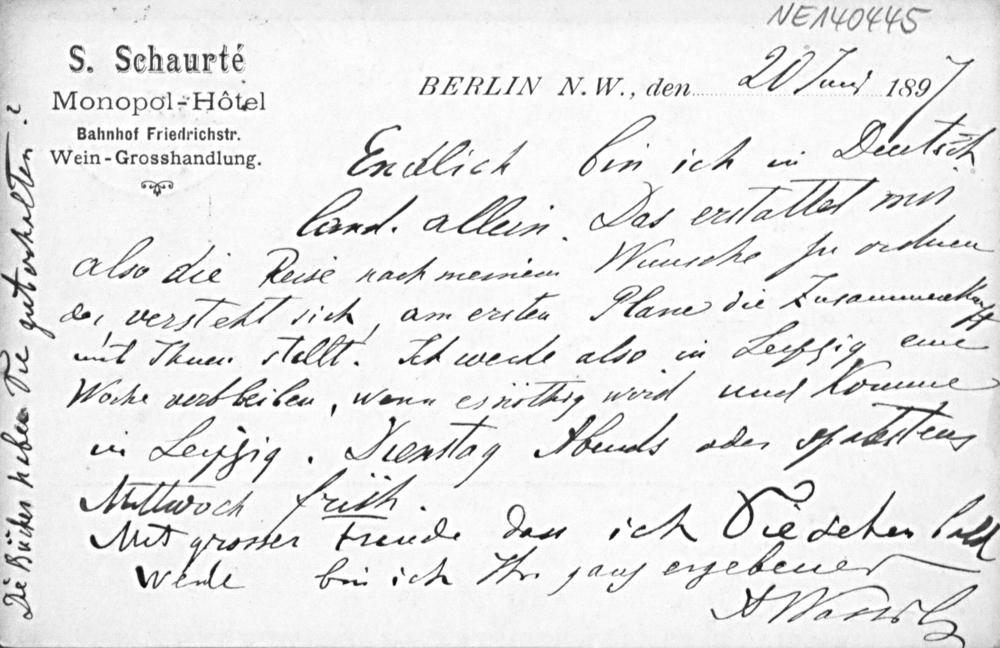 NE140445
S. Schaurté
Monopol-Hôtel
Bahnhof Friedrichstr.
Wein-Grosshandlung.
BERLIN N. W., den 20 Juni 1897
Endlich bin ich in Deutsch
land. allein. Das erstattet mir
also die Reise nach meinem Wunsche zu ordnen
das versteht sich, am ersten Plane die Zusammenkunft
mit Ihnen stellt. Ich werde also in Leipzig eine
Woche verbleiben, wenn es nöthig wird und komme
in Leipzig. Dienstag Abends oder spätestens
Mittwoch früh.
Mit grosser Freude dass ich Sie sehen bald
werde bin ich Ihr ganz ergebener
A
Die Bücher haben Sie gut erhalten?